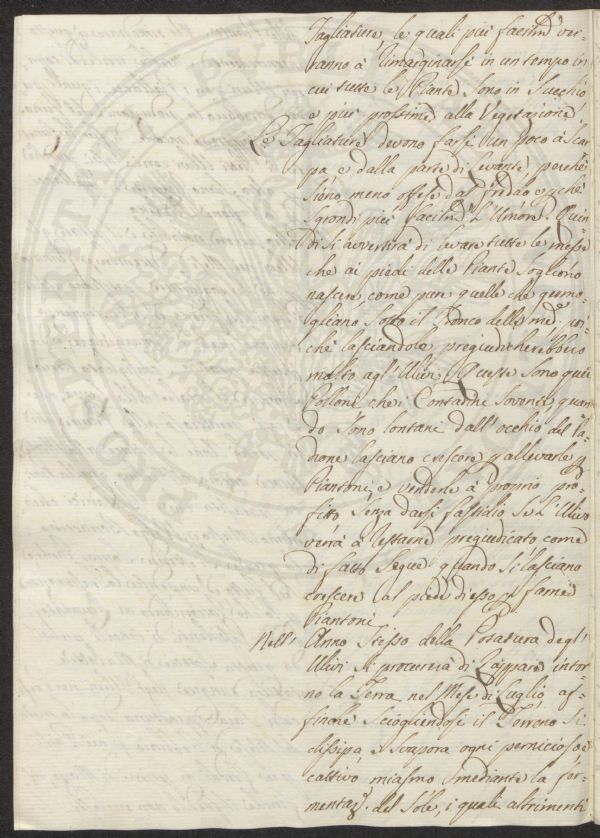 Tagliature, le quali più facilm.e ver-
ranno à rimarginarsi in un tempo in
cui tutte le Piante sono in Succhio
e più prossime alla Vegetazione
Le Tagliature devono farsi un poco à Scar
pa e dalla parte di Levante, perchè
siéno meno offese dal freddo e p chè
sgrondi più facilm.e l'Umore. Quin
di si avvertirà di levare tutte le messe
che ai piedi delle Piante sogliono
nascere, come pure quelle che germo-
gliano sotto il Tronco delle med.e poi-
chè lasciandole pregiudicherebbero
molto agl'Ulivi. Queste sono quei
Polloni che i Contadini sovente, quan
do sono lontani dall'occhio del Pa-
drone lasciano crescere p allevarle p
Piantoni, e venderle à proprio pro-
fitto senza darsi fastidio se l'Ulivo
verrà à restarne pregiudicato come
di fatto segue quando si lasciano
crescere al piede d'esso p farne
Piantoni.
Nell' Anno stesso della Potatura degl'
Ulivi si procurerà di Zappare intor-
no la Terra nel Mese di Luglio af-
finchè sciogliendosi il Terreno si
dissipa e svapora ogni pernicioso e
cattivo miasmo mediante la fer-
mentaz.e del Sole, i quali altrimenti